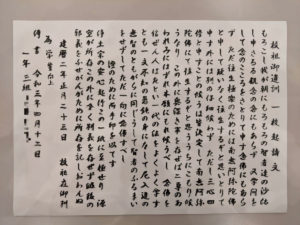 故祖御遺訓 一枚起請文
もろこし我が朝にもろもろの智者達の沙汰
申さるる観念の念にもあらず 又学問を
して念のこころをさとりて申す念仏にもあら
ず ただ往生極楽のためには南無阿弥陀佛
と申して疑いなく往生するぞと思いとりて
申す外には別の仔細候わず ただし三心四
修と申すことの候うは皆決定して南無阿弥
陀佛にて往生するぞと思ううちにこもり候
うなり この外に奥深き事を存ぜば二尊のあ
われみにはずれ本願にもれ候うべし 念佛
を信ぜん人はたとい一代の法をよくよく学す
とも一文不知の愚鈍の身になして尼入道の
無智のともがらに同じうして智者のふるまい
をせずしてただ一向に念佛すべし
證のために両手印を以てす
浄土宗の安心起行この一紙に至極せり 源
空が所存この外に全く別義を存ぜず滅後の
邪義をふせがんがために所存を記し畢んぬ
建暦二年正月二十三日
為 学業向上
時書 令和三年四月十三日
一年三組